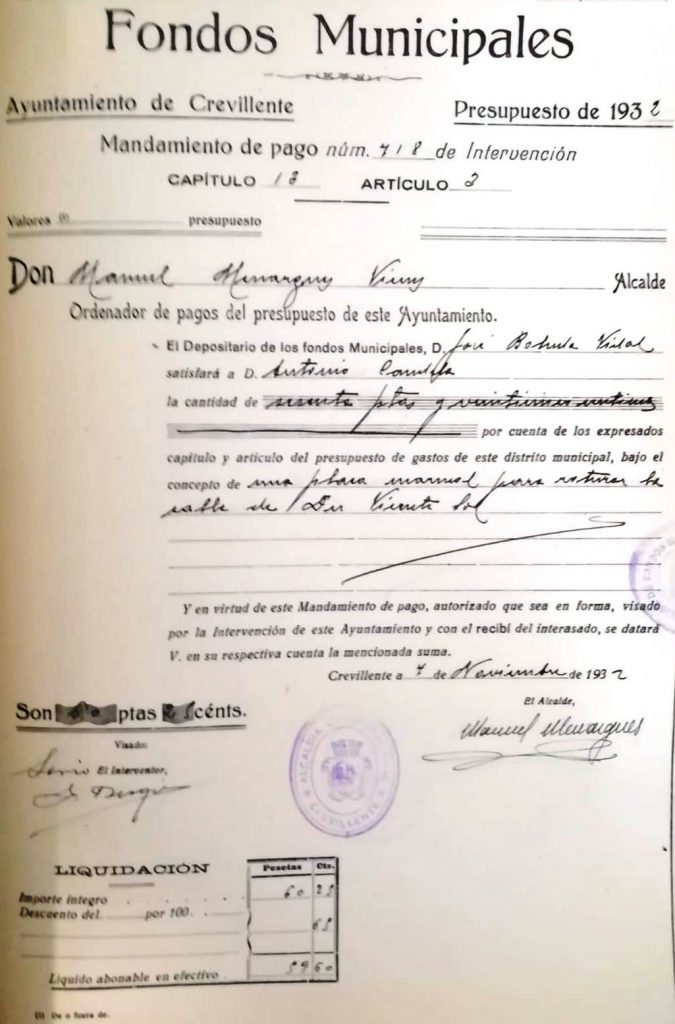 Fondos Municipales
Ayuntamiento de Crevillente
Presupuesto de 1932
Mandamiento de pago núm. 718 de Intervención
CAPÍTULO 12 ARTÍCULO 2
Valores (1) presupuesto
Don Manuel Menargues Alcalde
Ordenador de pagos del presupuesto de este Ayuntamiento.
El Depositario de los fondos Municipales, D. José Vidal
satisfará a D. Antonio Candela
la cantidad de sesenta ptas y veintiocho
por cuenta de los expresados
capítulo y artículo del presupuesto de gastos de este distrito municipal, bajo el
concepto de una placa marmol para roturar la
calle de Dn Vicente Sol
Y en virtud de este Mandamiento de pago, autorizado que sea en forma, visado
por la Intervención de este Ayuntamiento y con el recibí del interasado, se datará
V. en su respectiva cuenta la mencionada suma.
Crevillente a 7 de Noviembre de 1932
El Alcalde,
Manuel Menargues
Son ptas cénts.
Visado:
El Interventor,
ALCALDIA CREVILLENTE
LIQUIDACIÓN
Pesetas Cts.
Importe íntegro 60 28
Descuento del por 100. 68
Líquido abonable en efectivo 59 60
(1) De o fuera de.